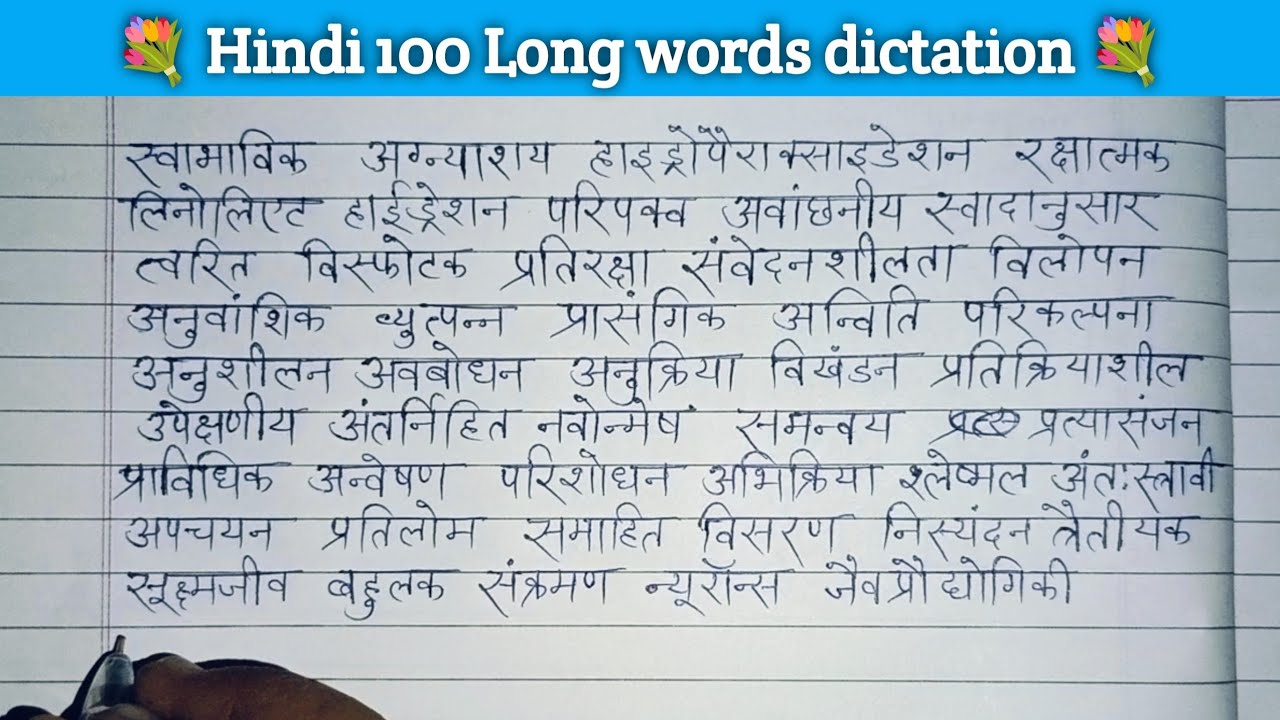 Hindi 100 Long words dictation
स्वाभाविक अग्न्याशय हाइड्रोपैराक्साइडेशन रक्षात्मक
लिनोलिएट हाईड्रेशन परिपक्व अवांछनीय स्वादानुसार
त्वरित विस्फोटक प्रतिरक्षा संवेदनशीलता विलोपन
अनुवांशिक व्युत्पन्न प्रासंगिक अन्विति परिकल्पना
अनुशीलन अवबोधन अनुक्रिया विखंडन प्रतिक्रियाशील
उपेक्षणीय अंतर्निहित नवोन्मेष समन्वय प्रत्यासंजन
प्राविधिक अन्वेषण परिशोधन अभिक्रिया श्लेष्मल अंतःस्त्रावी
अपचयन प्रतिलोम समाहित विसरण निस्यंदन त्रैतीयक
सूक्ष्मजीव बहुलक संक्रमण न्यूरॉन्स जैवप्रौद्योगिकी